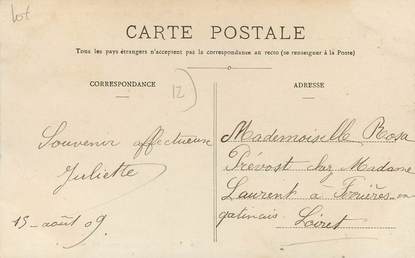 lot
CARTE POSTALE
Tous les pays étrangers n'acceptent pas la correspondance au recto (se renseigner à la Poste)
CORRESPONDANCE
12
ADRESSE
Souvenir affectueux
Juliette
15 août 09
Mademoiselle Rosa
Prévost chez Madame
Laurent à Ferrières-en
gatinais. Loiret